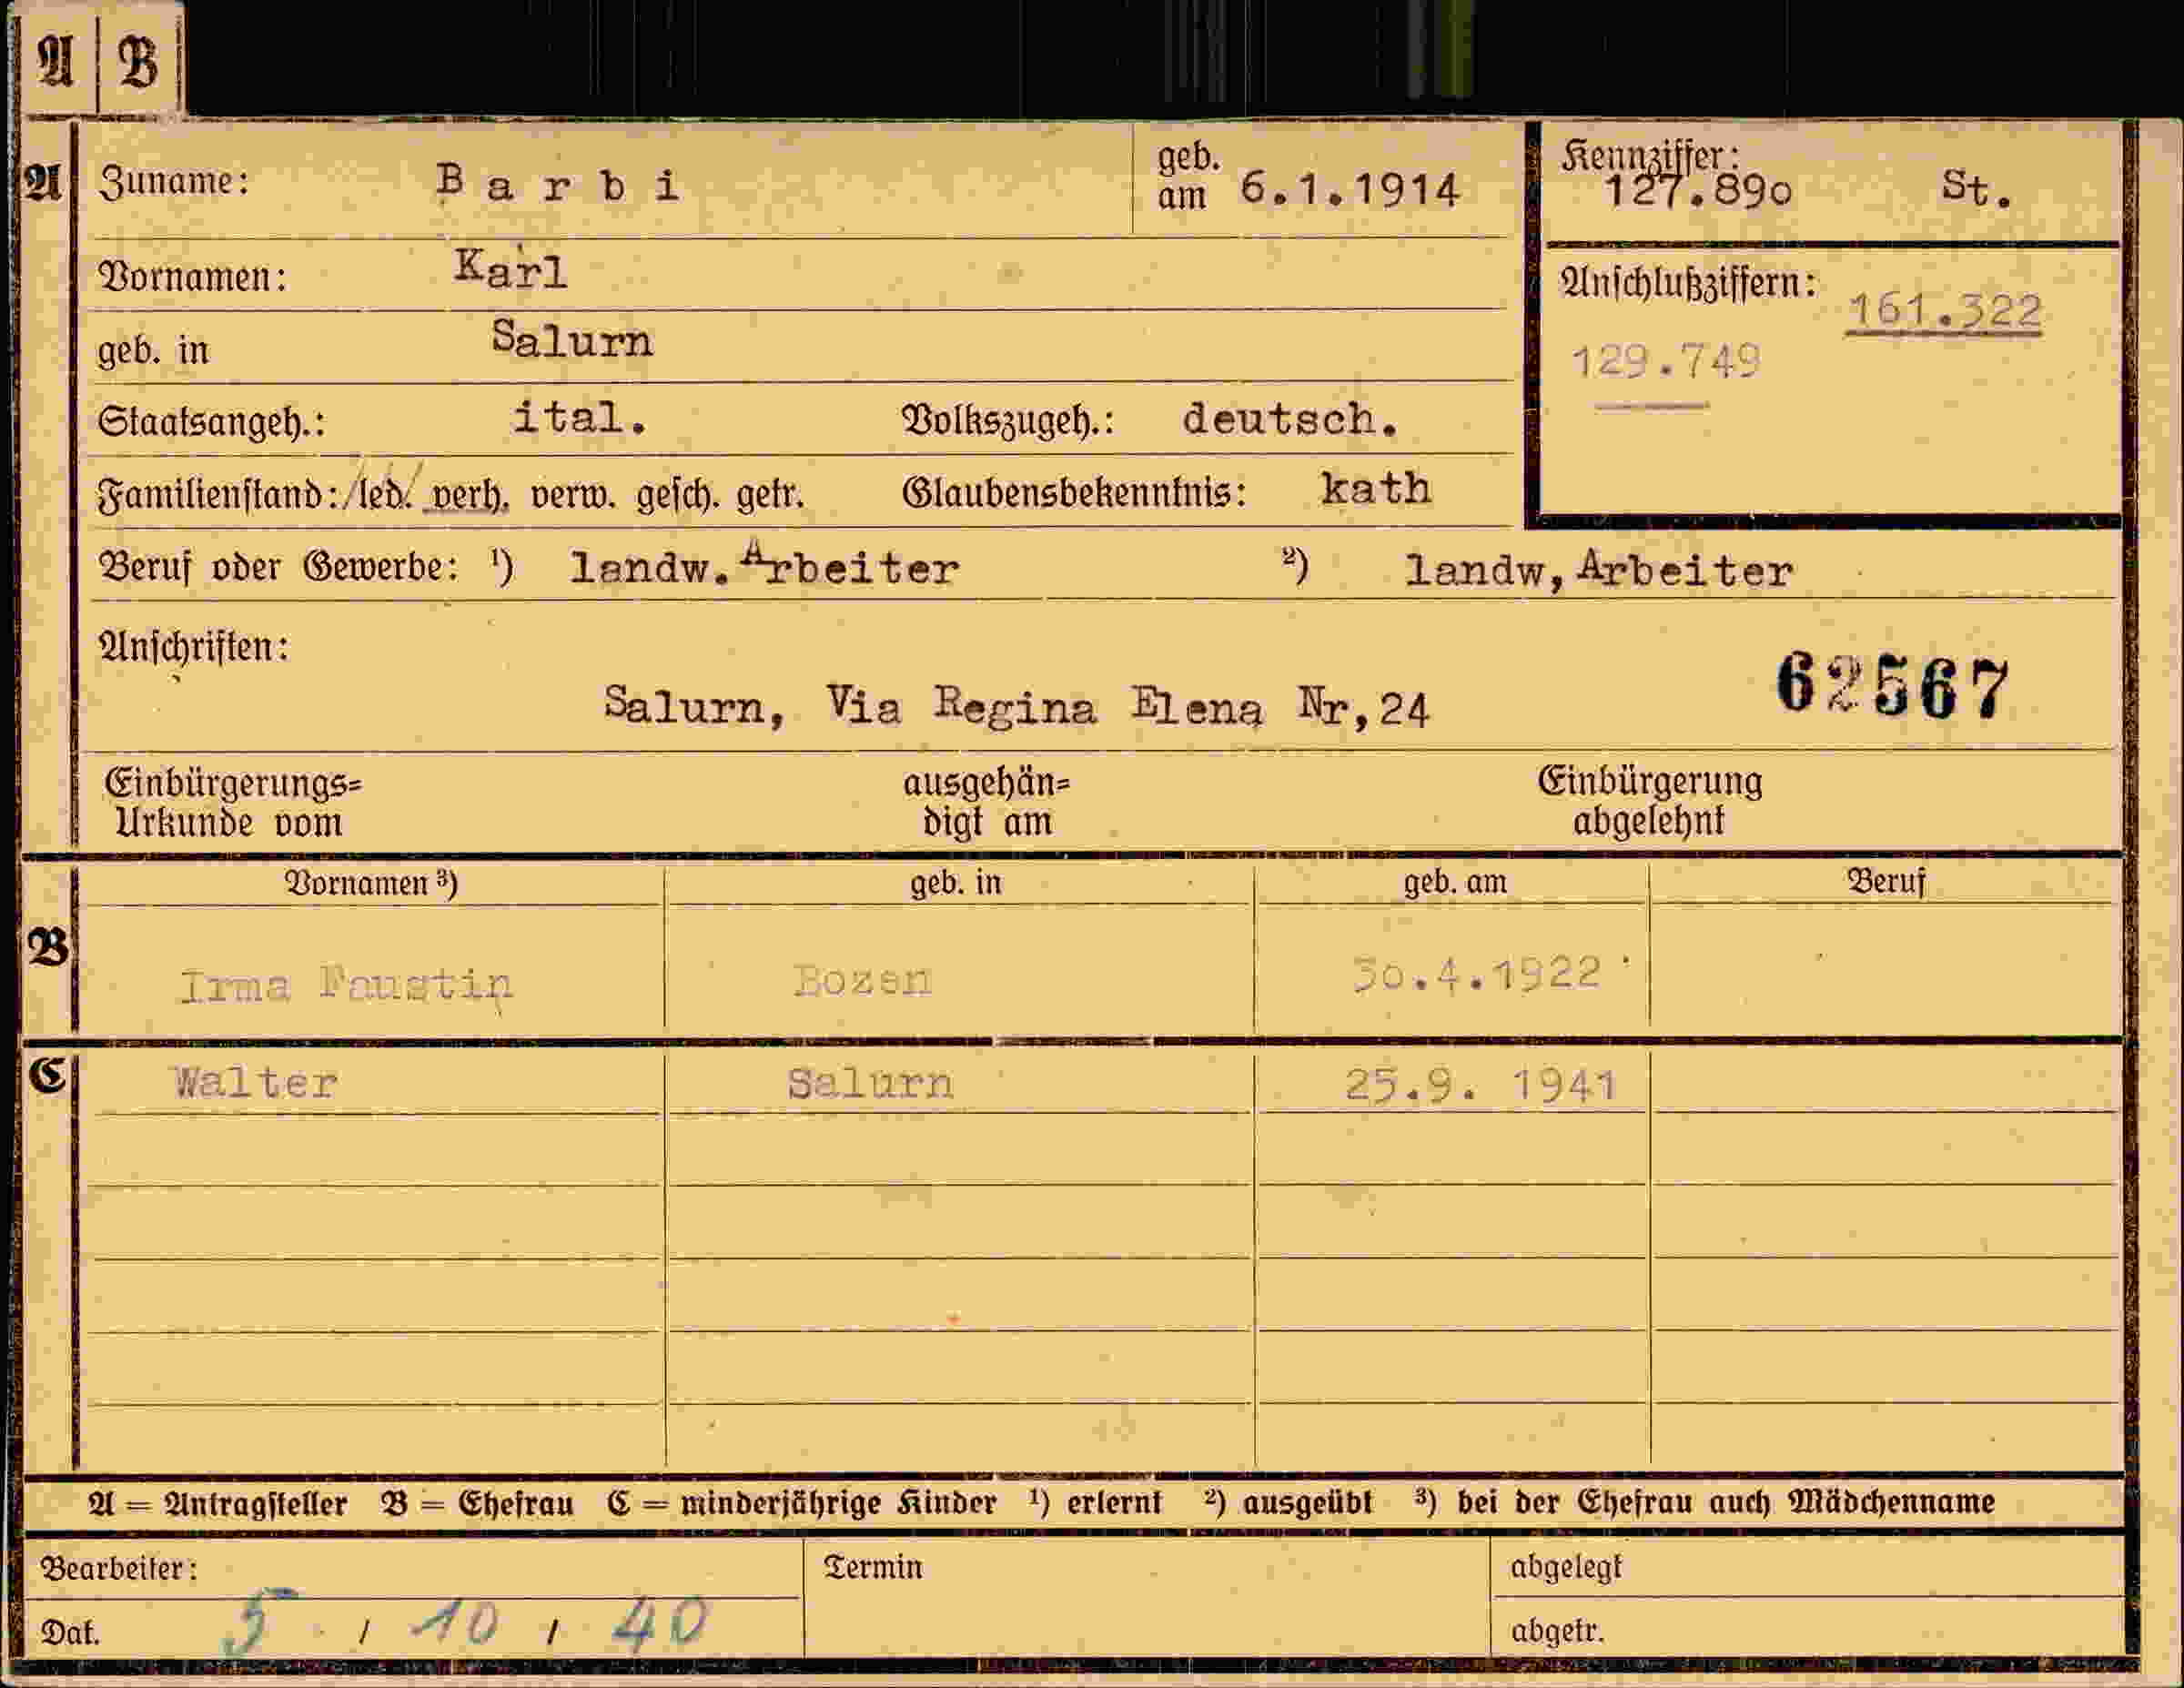 A B
A Zuname: Barbi geb. am 6.1.1914 Kennziffer: 127.89o St.
Vornamen: Karl
Anschlußziffern: 161.322
geb. in Salurn
129.749
Staatsangeh.: ital. Volkszugeh.: deutsch.
Familienstand: /led./ verh. verw. gesch. getr. Glaubensbekenntnis: kath
Beruf oder Gewerbe: ¹) landw. Arbeiter ²) landw, Arbeiter
Anschriften:
62567
Salurn, Via Regina Elena Nr,24
Einbürgerungs= ausgehän= Einbürgerung
Urkunde vom digt am abgelehnt
Vornamen ³) geb. in geb. am Beruf
B Irma Faustin Bozen 3o.4.1922
C Walter Salurn 25.9. 1941
A = Antragsteller B = Ehefrau C = minderjährige Kinder ¹) erlernt ²) ausgeübt ³) bei der Ehefrau auch Mädchenname
Bearbeiter: Termin abgelegt
Dat. 5 / 10 / 40 abgetr.